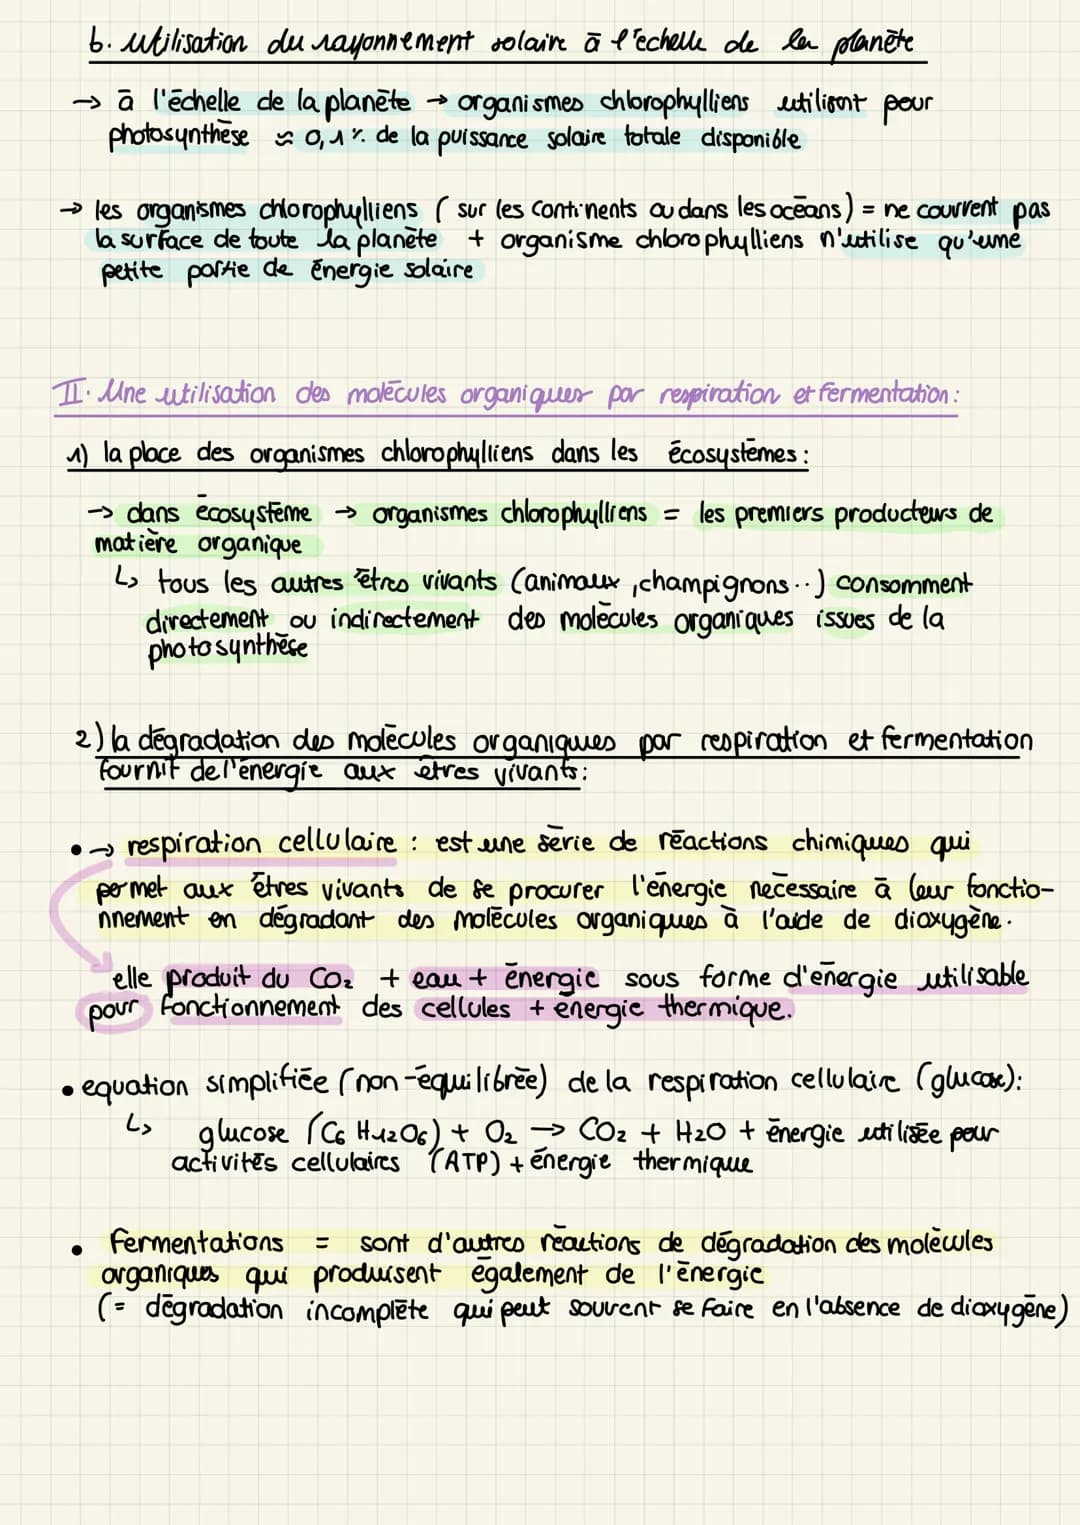 b. Utilisation du rayonnement solaire à l'échelle de la planète
→ à l'échelle de la planète → organismes chlorophylliens utilisent pour
photosynthèse ≈ 0,1 % de la puissance solaire totale disponible
→ les organismes chlorophylliens ( sur les continents ou dans les océans) = ne couvrent pas
la surface de toute la planète + organisme chlorophylliens n'utilise qu'une
petite partie de énergie solaire
II. Une utilisation des molécules organiques par respiration et fermentation :
1) la place des organismes chlorophylliens dans les écosystèmes :
→ dans écosystème → organismes chlorophylliens = les premiers producteurs de
matière organique
↳ tous les autres êtres vivants (animaux, champignons..) consomment
directement ou indirectement des molécules organiques issues de la
photosynthèse
2) la dégradation des molécules organiques par respiration et fermentation
fournit de l'énergie aux êtres vivants :
• → respiration cellulaire : est une série de réactions chimiques qui
permet aux êtres vivants de se procurer l'énergie nécessaire à leur fonctio-
nnement en dégradant des molécules organiques à l'aide de dioxygène.
elle produit du CO₂ + eau + énergie sous forme d'énergie utilisable
pour fonctionnement des cellules + énergie thermique.
• equation simplifiée (non-équilibrée) de la respiration cellulaire (glucose):
↳ glucose (C6 H12O6) + O₂ → CO₂ + H₂O + énergie utilisée pour
activités cellulaires (ATP) + énergie thermique
• Fermentations = sont d'autres réactions de dégradation des molécules
organiques qui produisent également de l'énergie
(= dégradation incomplète qui peut souvent se faire en l'absence de dioxygène)